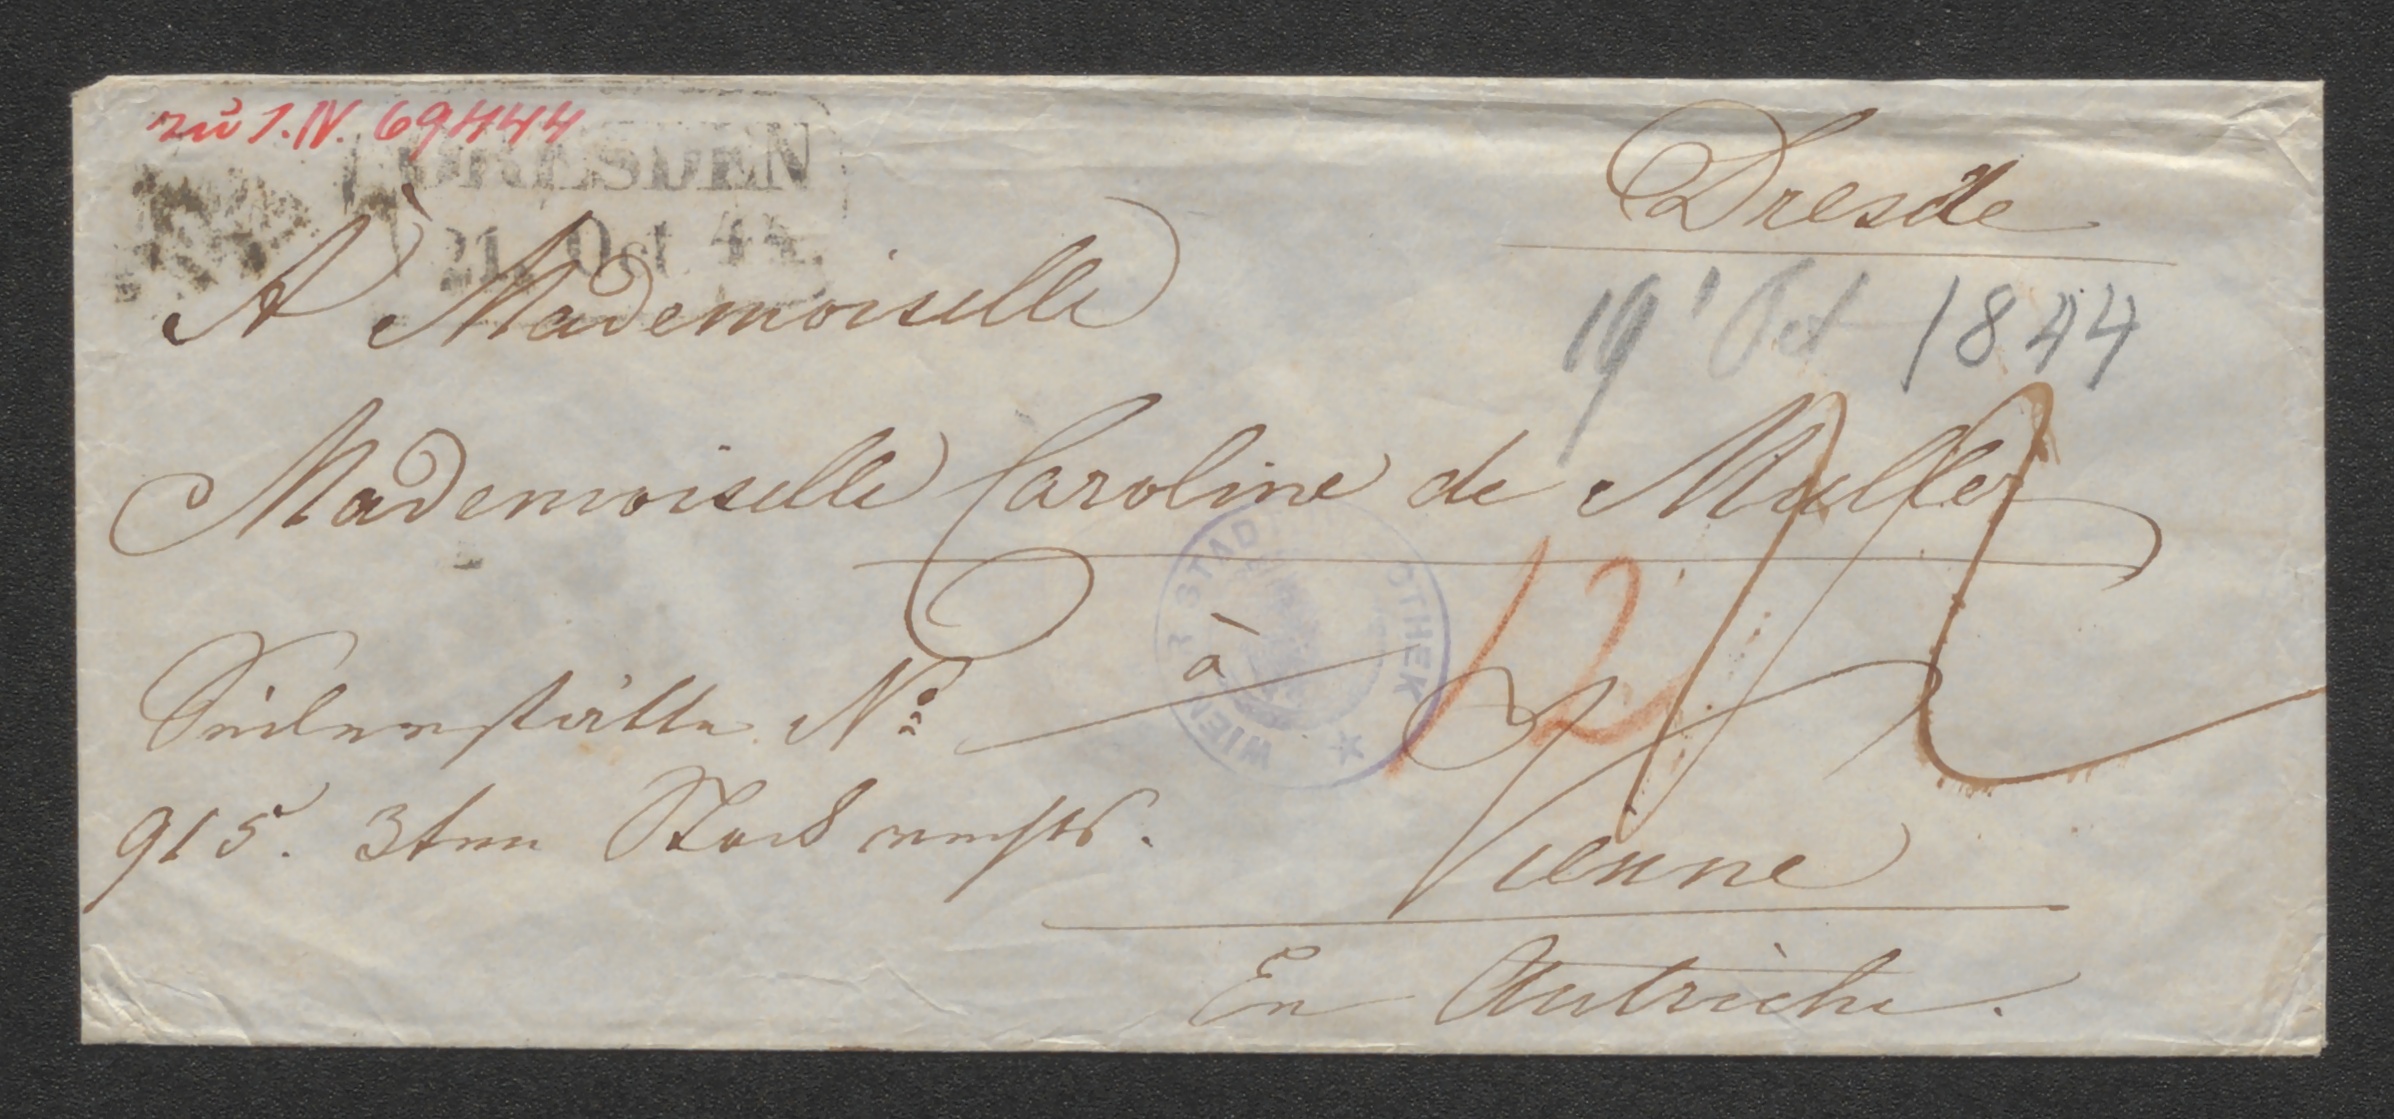 zu I.N. 69444
DRESDEN
21. Oct 44.
Dresde
19' Oct 1844
A Mademoiselle
Mademoiselle Caroline de Muller
12
Seilerstätte No
915. 3ten Stock rechts.
à
Vienne
En Autriche.
WIENER STAD OTHEK